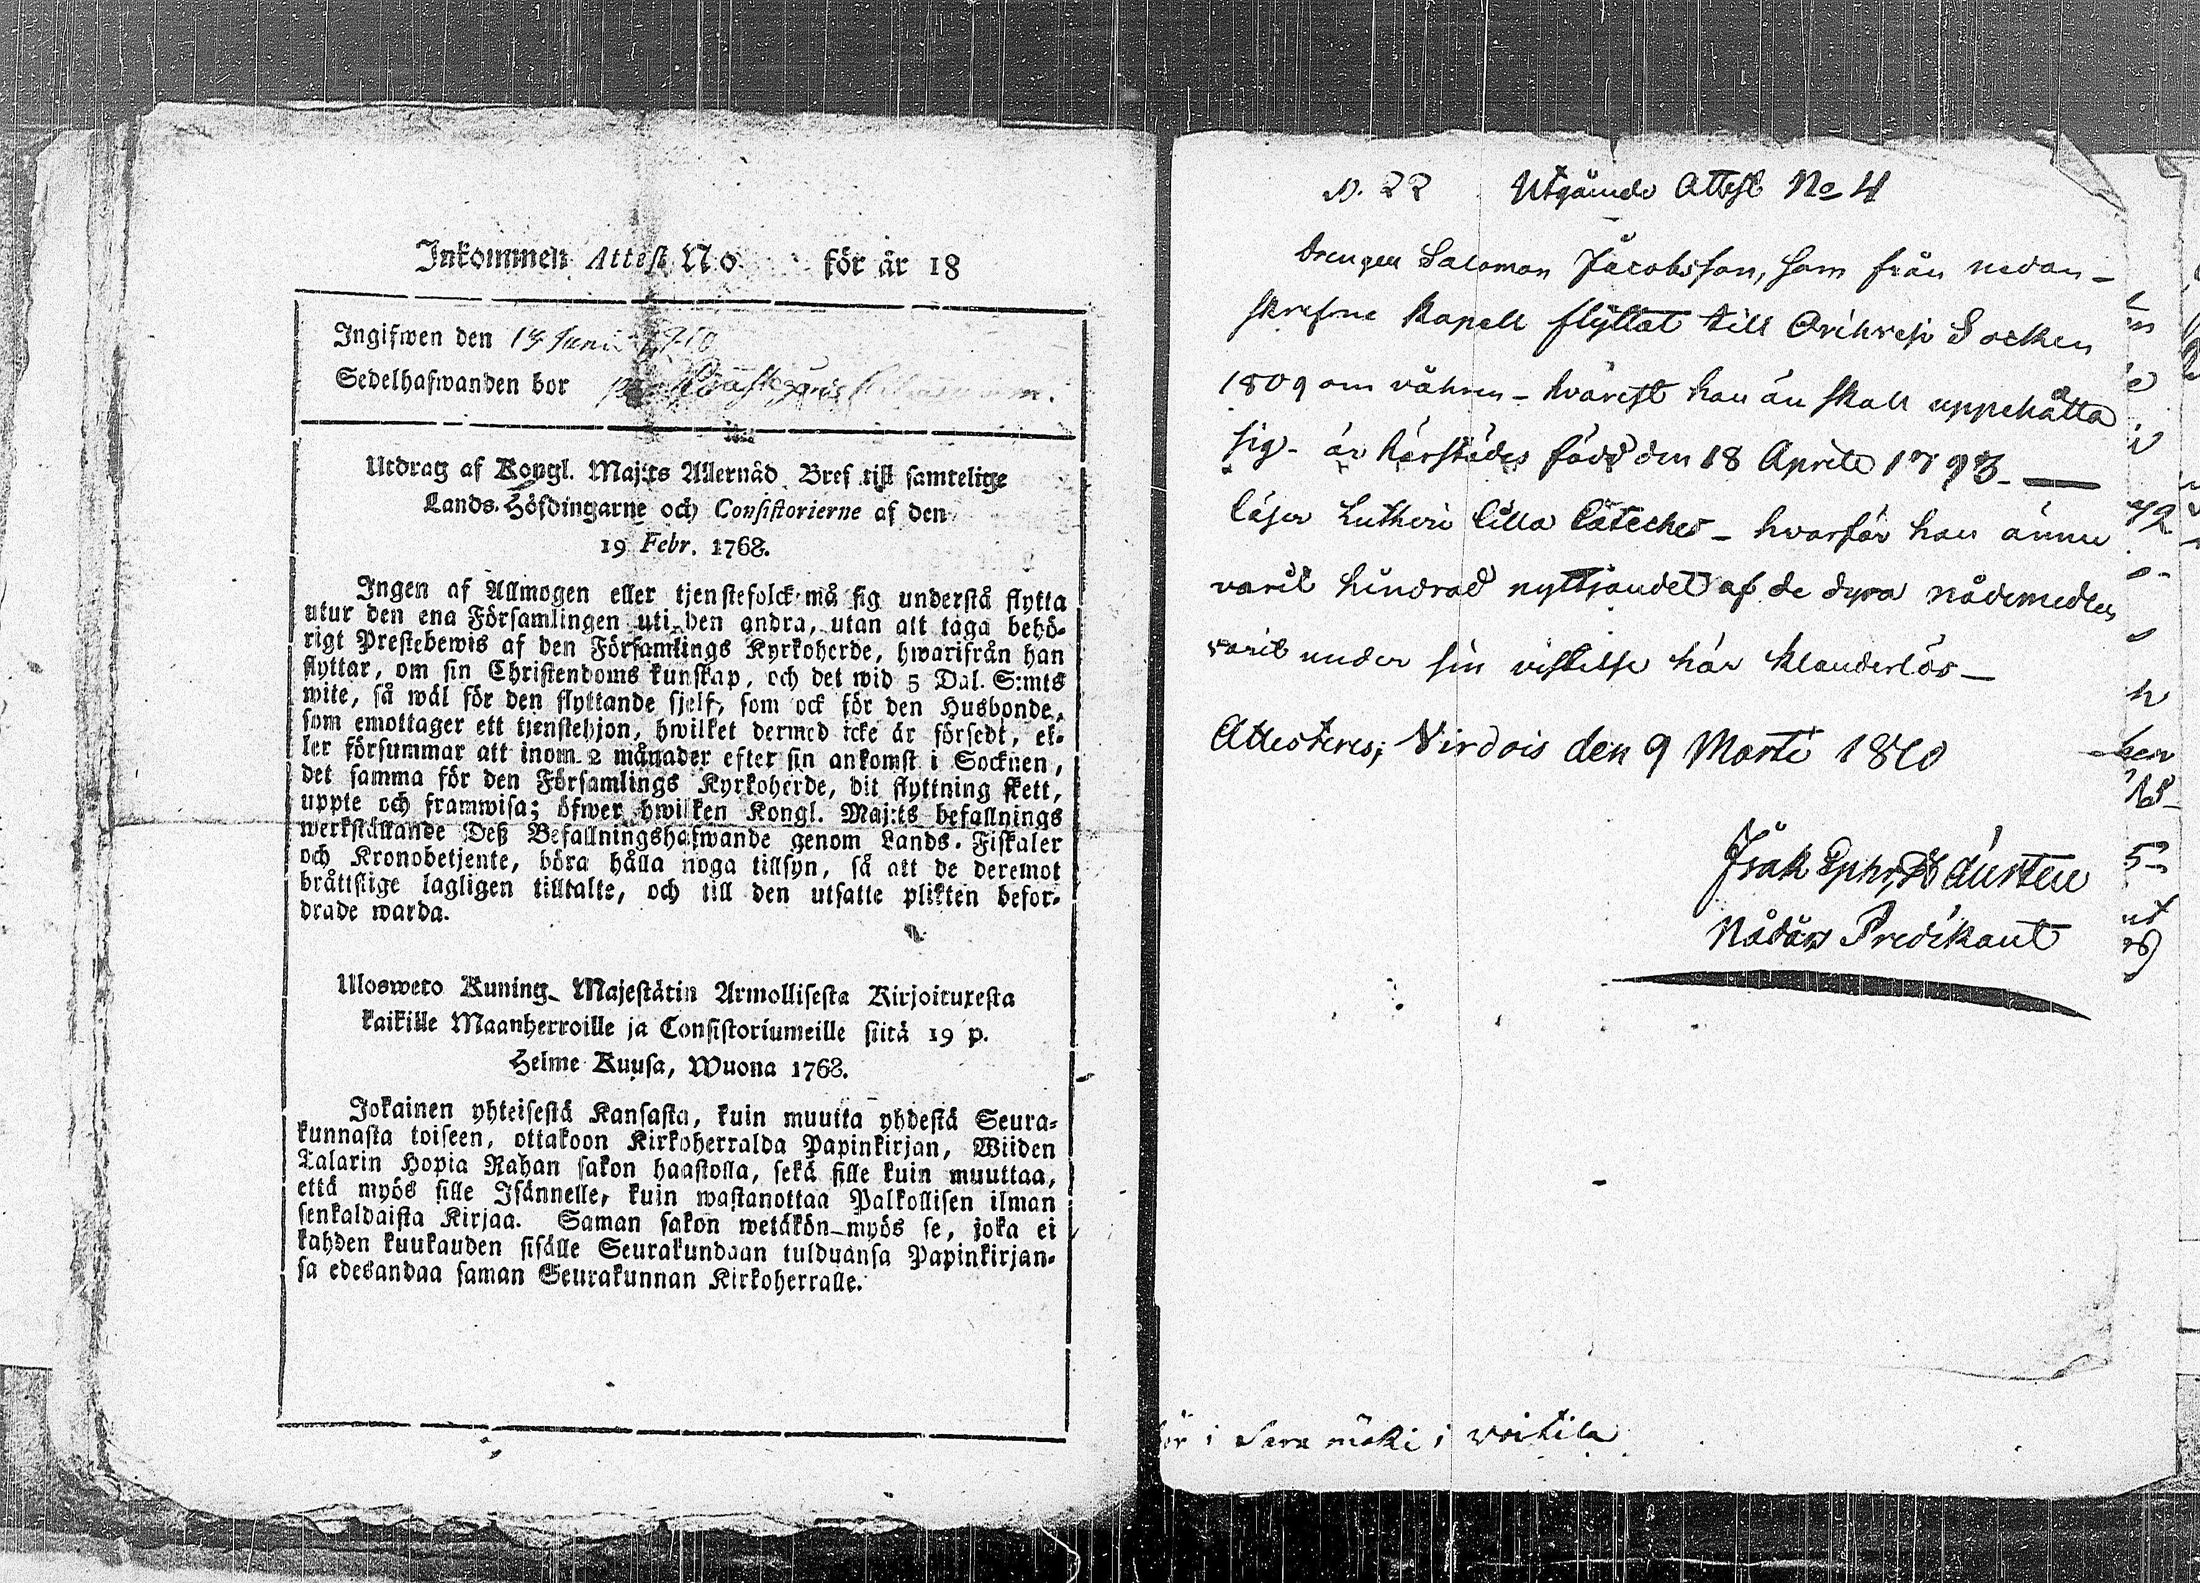 Inkommen Attest No för år 18
Ingifwen den 19 Juni 1810
Sedelhafwanden bor
Utdrag af Kongl. Maj:ts Allernåd. Bref till samtelige
Lands-Höfdingarne och Consistorierne af den
19 Febr. 1768.
Ingen af Allmogen eller tjenstefolck må sig understå flytta
utur den ena Församlingen uti den andra, utan att taga behö-
rigt Prestebewis af den Församlings Kyrkoherde, hwarifrån han
flyttar, om sin Christendoms kunskap, och det wid 5 Dal. S:mts
wite, så wäl för den flyttande sjelf, som ock för den Husbonde,
som emottager ett tjenstehjon, hwilket dermed icke är försedt, el-
ler försummar att inom 2 månader efter sin ankomst i Socknen,
det samma för den Församlings Kyrkoherde, dit flyttning skett,
uppte och framwisa; öfwer hwilken Kongl. Maj:ts befallnings
werkställande Deß Befallningshafwande genom Lands-Fiskaler
och Kronobetjente, böra hålla noga tillsyn, så att de deremot
bråttslige lagligen tilltalte, och till den utsatte plikten befor-
drade warda.
Ulosweto Kuning. Majestätin Armollisesta Kirjoituxesta
kaikille Maanherroille ja Consistoriumeille siitä 19 p.
Helme Kuusa, Wuona 1768.
Jokainen yhteisestä Kansasta, kuin muutta yhdestä Seura-
kunnasta toiseen, ottakoon Kirkoherralda Papinkirjan, Wiiden
Talarin Hopia Rahan sakon haastolla, sekä sille kuin muuttaa,
että myös sille Isännelle, kuin wastanottaa Palkollisen ilman
senkaldaista Kirjaa. Saman sakon wetäkön myös se, joka ei
kahden kuukauden sisälle Seurakundaan tulduansa Papinkirjan-
sa edesandaa saman Seurakunnan Kirkoherralle.
N. 22 Utgående Attest No 4
Drengen Salomon Jacobsson, som från nedan-
skrefne Kapell flyttat till Orihvesi Socken
1809 om våhren - hvarest han än skall uppehålla
sig - är härstädes född den 18 Aprile 1793 -
läser Lutheri lilla Cateches - hvarför han ännu
varit hindrad nyttjandet af de dyra nådemedlen
varit under sin vistelse här klanderlös -
Attesteres; Virdois den 9 Marti 1810
Isak Ephr,
Nådårs Predikant
i Saramäki i Voitila